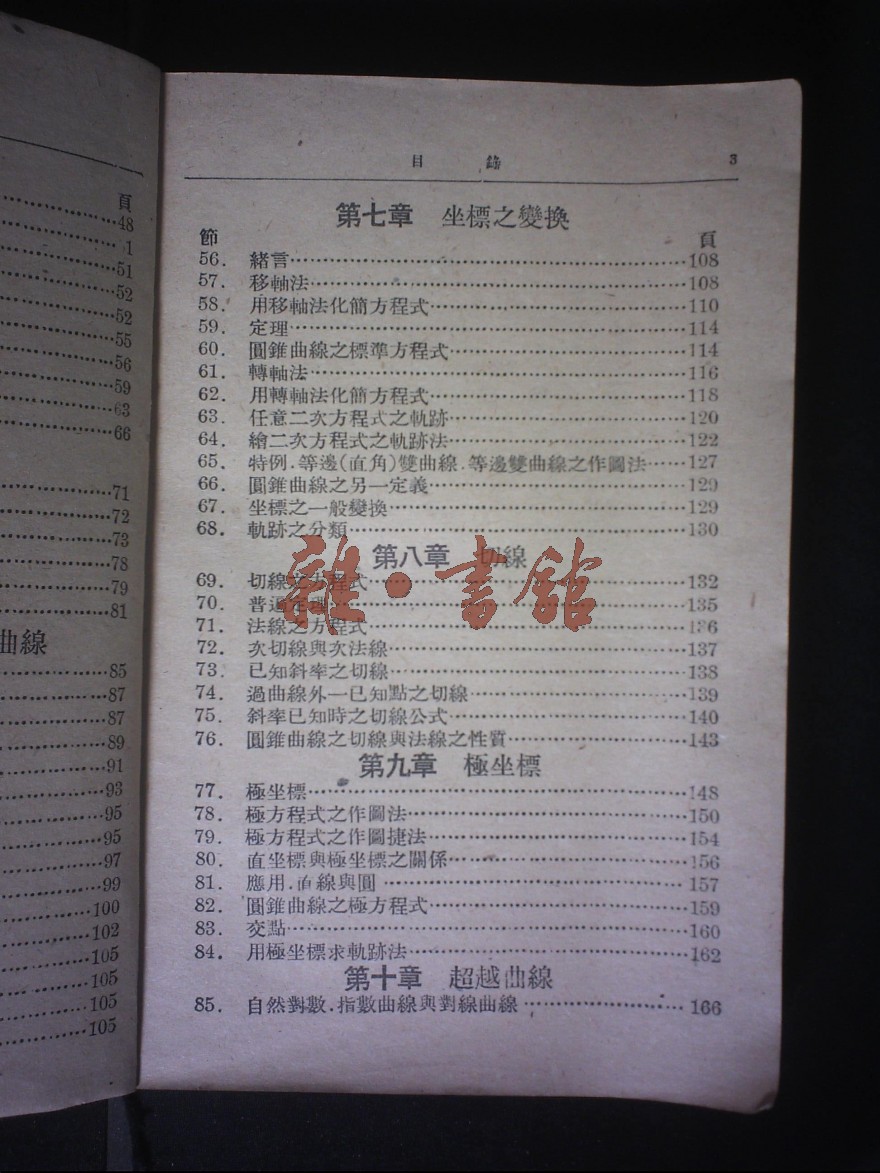 頁
48
1
51
52
52
55
56
59
63
66
71
72
73
78
79
81
曲線
85
87
87
89
91
93
95
95
97
99
100
102
105
105
105
105
目 錄 3
第七章 坐標之變換
節 頁
56. 緒言……108
57. 移軸法……108
58. 用移軸法化簡方程式……110
59. 定理……114
60. 圓錐曲線之標準方程式……114
61. 轉軸法……116
62. 用轉軸法化簡方程式……118
63. 任意二次方程式之軌跡……120
64. 繪二次方程式之軌跡法……122
65. 特例.等邊(直角)雙曲線.等邊雙曲線之作圖法……127
66. 圓錐曲線之另一定義……129
67. 坐標之一般變換……129
68. 軌跡之分類……130
第八章 切線
69. 切線之方程式……132
70. 普遍定理……135
71. 法線之方程式……136
72. 次切線與次法線……137
73. 已知斜率之切線……138
74. 過曲線外一已知點之切線……139
75. 斜率已知時之切線公式……140
76. 圓錐曲線之切線與法線之性質……143
雜·書館
第九章 極坐標
77. 極坐標……148
78. 極方程式之作圖法……150
79. 極方程式之作圖捷法……154
80. 直坐標與極坐標之關係……156
81. 應用.直線與圓……157
82. 圓錐曲線之極方程式……159
83. 交點……160
84. 用極坐標求軌跡法……162
第十章 超越曲線
85. 自然對數.指數曲線與對線曲線……166